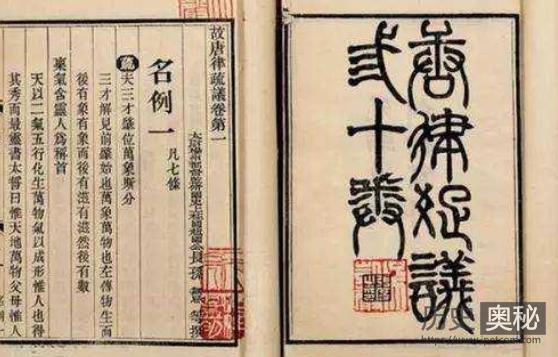 唐律疏議
弎十卷
故唐律疏議卷第一
長孫無忌等撰
名例一 凡七條
疏 夫三才肇位萬象斯分
三才解見前肇始也萬象萬物也左傳物生而
後有象有象而後有滋滋然後有數
稟氣含靈人爲稱首
天以二氣五行化生萬物氣以成形惟人也得
其秀而最靈書太誓曰惟天地萬物父母惟人
历史奥秘